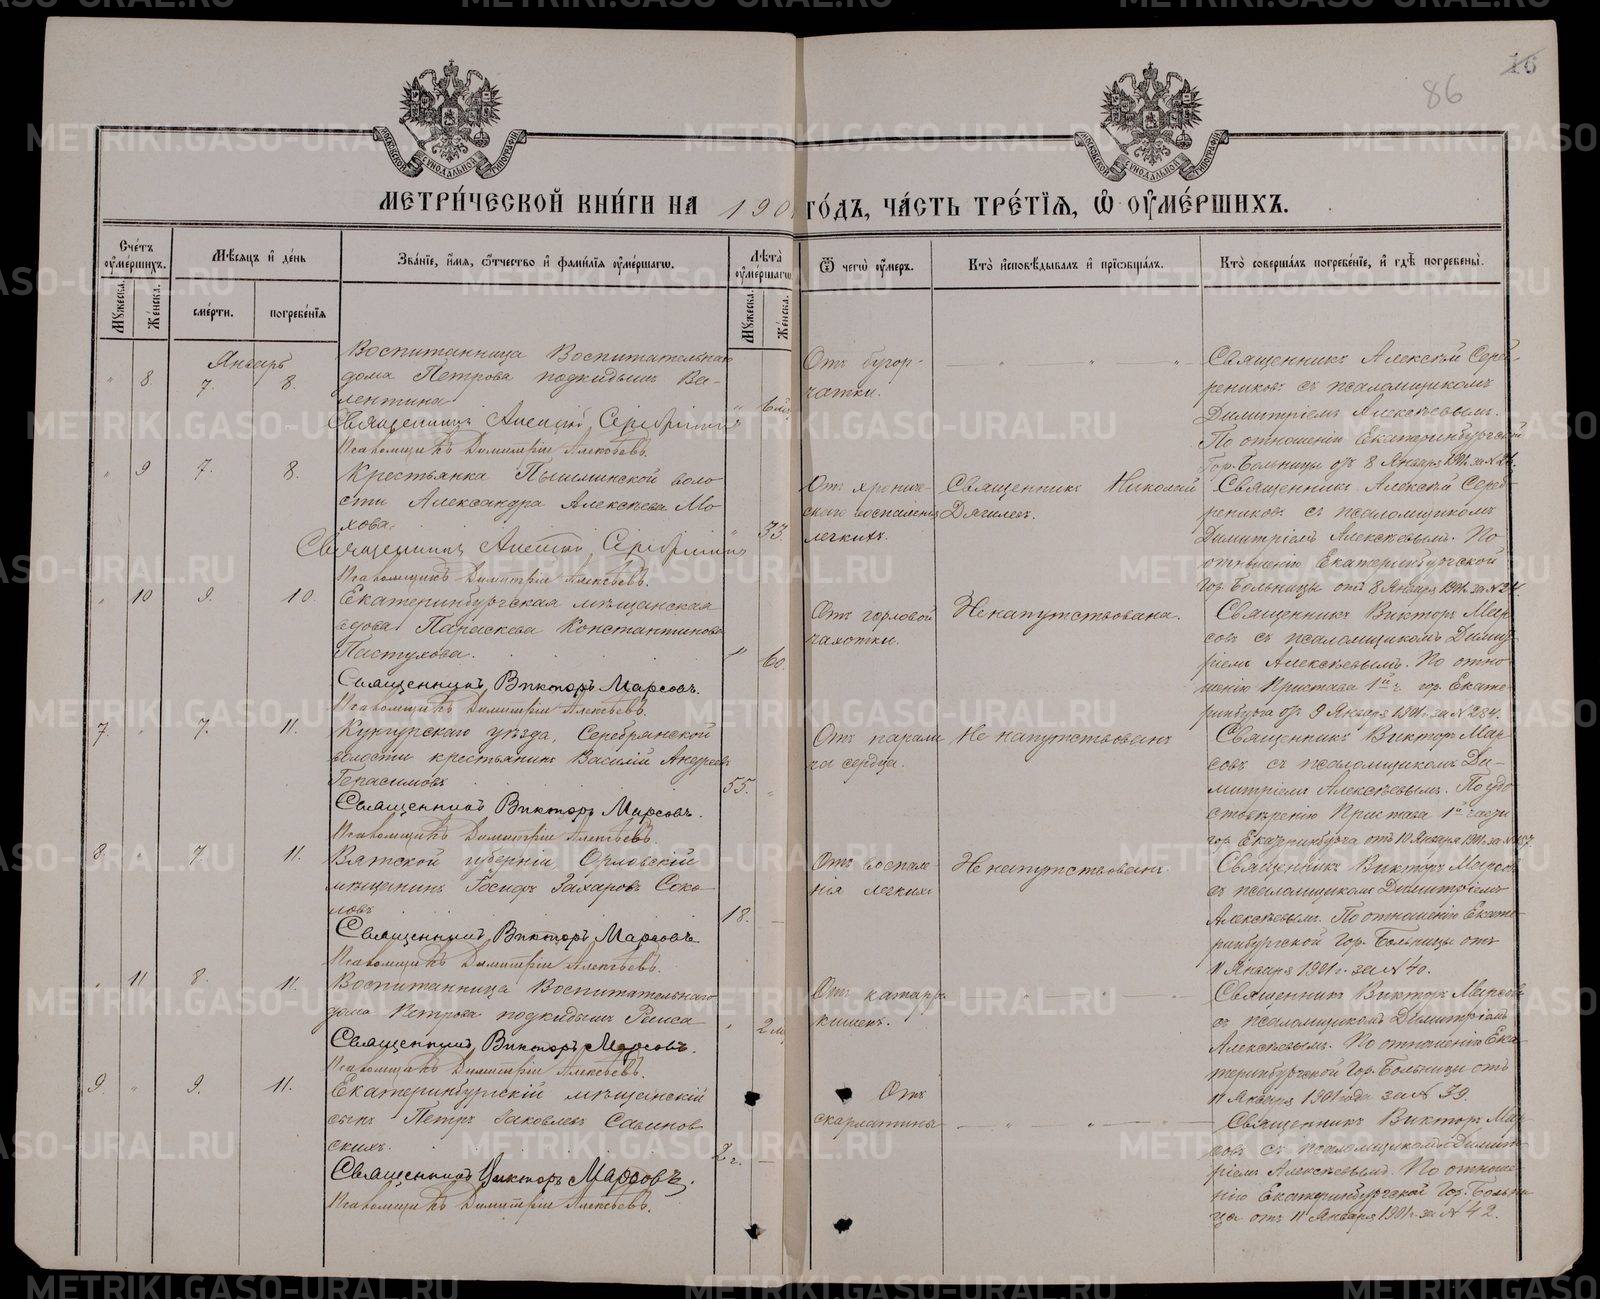 16
86
МОСКОВСКОЙ СѴНОДАЛЬНОЙ ТИПОГРАФІИ
МОСКОВСКОЙ СѴНОДАЛЬНОЙ ТИПОГРАФІИ
МЕТРИ́ЧЕСКОЙ КНИ́ГИ НА 190 ГО́ДЪ, ЧА́СТЬ ТРЕ́ТІѦ, Ѡ ОУМЕ́РШИХЪ.
Сче́тъ оуме́ршихъ.
Мѣ́сяцъ и де́нь
Зва́ніе, и́мя, ѻ́тчество и фами́лія оуме́ршагѡ.
Лѣ́та оуме́ршагѡ
Ѿ чегѡ̀ оу́меръ.
Кто̀ исповѣ́дывалъ и пріѡбща́лъ.
Кто̀ соверша́лъ погребе́ніе, и гдѣ̀ погребены̀.
Мꙋ́жеска.
Же́нска.
сме́рти.
погребе́нія
Мꙋ́жеска.
Же́нска.
Январь
" 8. 7. 8.
Воспитанница Воспитательнаго
дома Петрова подкидышъ Ва-
лентина
Священникъ Алексій
Псаломщикъ Димитрій Алексѣевъ.
Отъ бугор-
чатки.
Священникъ Алексѣй Сереб-
рениковъ съ псаломщикомъ
Димитріемъ Алексѣевымъ.
По отношенію Екатеринбургской
Гор. Больницы отъ 8 Января 1901 г. за №
" 9 7. 8.
Крестьянка Пышминской воло
сти Александра Алексѣева Мо
хова.
" 53.
Священникъ Алексій
Псаломщикъ Димитрій Алексѣевъ.
Отъ хрониче-
скаго воспаленія
легкихъ.
Священникъ Николай
Дягилевъ.
Священникъ Алексѣй Сереб-
рениковъ съ псаломщикомъ
Димитріемъ Алексѣевымъ. По
отношенію Екатеринбургской
гор. Больницы отъ 8 Января 1901 г. за №
" 10 9. 10.
Екатеринбургская мѣщанская
вдова Параскева Константинова
Пастухова.
" 60.
Священникъ Викторъ Марсовъ.
Псаломщикъ Димитрій Алексѣевъ.
Отъ горловой
чахотки.
Не напутствована.
Священникъ Викторъ Мар-
совъ съ псаломщикомъ Димит-
ріемъ Алексѣевымъ. По отно-
шенію Пристава 1й ч. гор. Екате-
ринбурга отъ 9 Января 1901 г. за № 284.
7. " 7. 11.
Кунгурскаго уѣзда, Серебрянской
волости крестьянинъ Василій Андреевъ
Герасимовъ
55. "
Священникъ Викторъ Марсовъ.
Псаломщикъ Димитрій Алексѣевъ.
Отъ парали
ча сердца.
Не напутствованъ
Священникъ Викторъ Мар-
совъ съ псаломщикомъ Ди-
митріемъ Алексѣевымъ. По удо-
стовѣренію Пристава 1й части
гор. Екатеринбурга отъ 10 Января 1901 г. за №
8. " 7. 11.
Вятской губерніи Орловскій
мѣщанинъ Іосифъ Захаровъ Соко-
ловъ
18. —
Священникъ Викторъ Марсовъ
Псаломщикъ Димитрій Алексѣевъ.
Отъ воспале-
нія легкихъ.
Не напутствованъ.
Священникъ Викторъ Марсовъ
съ псаломщикомъ Димитріемъ
Алексѣевымъ. По отношенію Екате-
ринбургской Гор. Больницы отъ
11 Января 1901 г. за № 40.
" 11 8. 11.
Воспитанница Воспитательнаго
дома Петрова подкидышъ Раиса
" 2 м.
Священникъ Викторъ Марсовъ.
Псаломщикъ Димитрій Алексѣевъ.
Отъ катарра
кишекъ.
Священникъ Викторъ Марсовъ
съ псаломщикомъ Димитріемъ
Алексѣевымъ. По отношенію Ека-
теринбургской Гор. Больницы отъ
11 Января 1901 года за № 39.
9. " 9. 11.
Екатеринбургскій мѣщанскій
сынъ Петръ Іаковлевъ Савинов
скихъ.
2 г. —
Священникъ Викторъ Марсовъ.
Псаломщикъ Димитрій Алексѣевъ.
Отъ
скарлатины
Священникъ Викторъ Мар-
совъ съ псаломщикомъ Димит-
ріемъ Алексѣевымъ. По отноше-
нію Екатеринбургской Гор. Больни-
цы отъ 11 Января 1901 г. за № 42.
METRIKI.GASO-URAL.RU